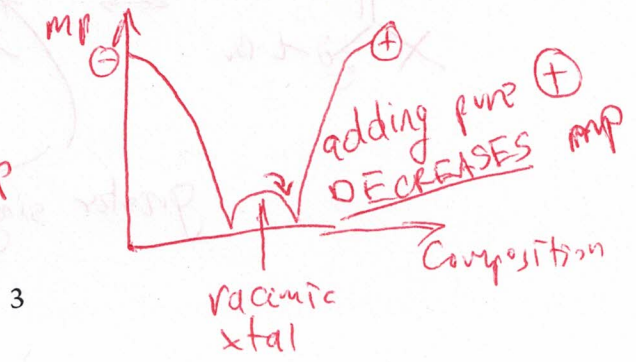 mp
⊖
⊕
adding pure ⊕
DECREASES mp
Composition
3
racemic
xtal